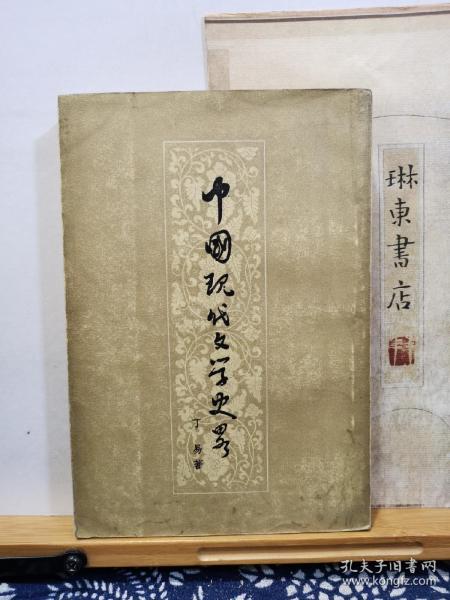 中國现代文学史畧
丁易著
琳東書店
孔夫子旧书网
www.kongfz.com